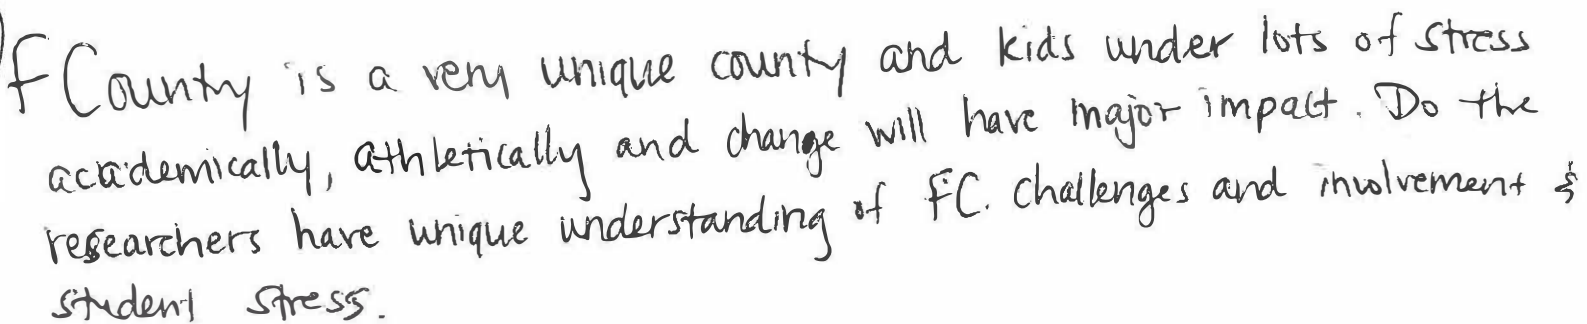 F County is a very unique county and kids under lots of stress
academically, athletically and change will have major impact. Do the
researchers have unique understanding of FC. challenges and involvement &
student stress.